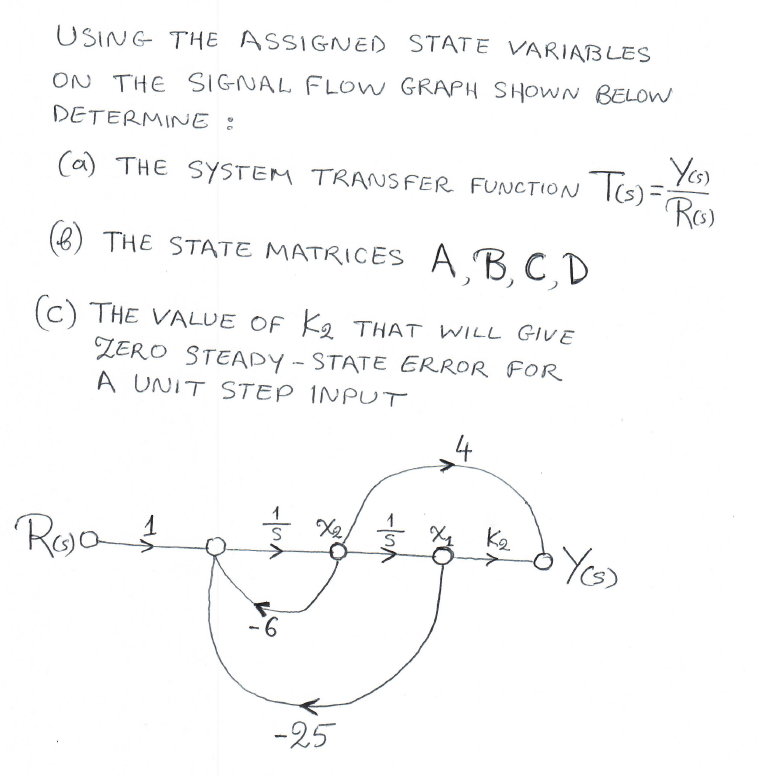 USING THE ASSIGNED STATE VARIABLES
ON THE SIGNAL FLOW GRAPH SHOWN BELOW
DETERMINE :
(a) THE SYSTEM TRANSFER FUNCTION T(s) = Y(s) / R(s)
(b) THE STATE MATRICES A, B, C, D
(C) THE VALUE OF K2 THAT WILL GIVE
ZERO STEADY-STATE ERROR FOR
A UNIT STEP INPUT
4
R(s) 1 1/S X2 1/S X1 K2 Y(s)
-6
-25